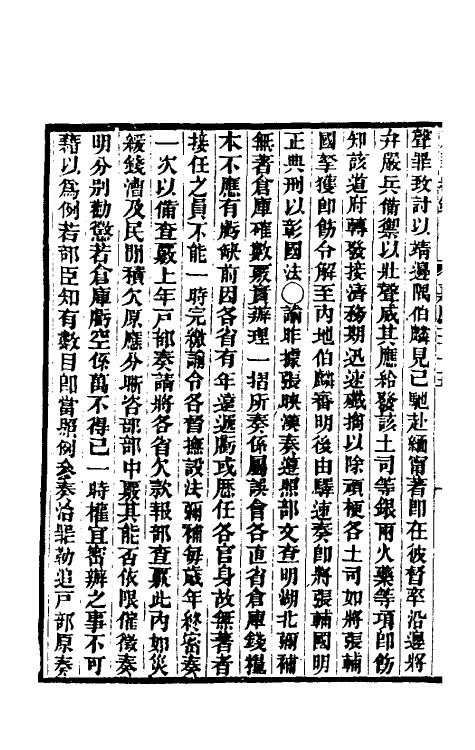 聲罪致討以靖邊隅伯麟見已馳赴緬甯著即在彼督率沿邊將
弁嚴兵備禦以壯聲威其應給發該土司等銀兩火藥等項即飭
知該道府轉發接濟務期迅速殲擒以除頑梗各土司如將張輔
國拏獲即飭令解至內地伯麟審明後由驛速奏即將張輔國明
正典刑以彰國法○諭昨據張映漢奏遵照部文查明湖北彌補
無著倉庫確數覈實辦理一摺所奏係屬誤會各直省倉庫錢糧
本不應有虧缺前因各省有年遠遞虧或歷任各官身故無著者
接任之員不能一時完繳諭令各督撫設法彌補每歲年終密奏
一次以備查覈上年戶部奏請將各省欠款報部查覈此內如災
緩錢漕及民閒積欠原應分晰咨部部中覈其能否依限催徵奏
明分別勸懲若倉庫虧空係萬不得已一時權宜密辦之事不可
藉以為例若部臣知有數目即當照例參奏治罪勒追戶部原奏